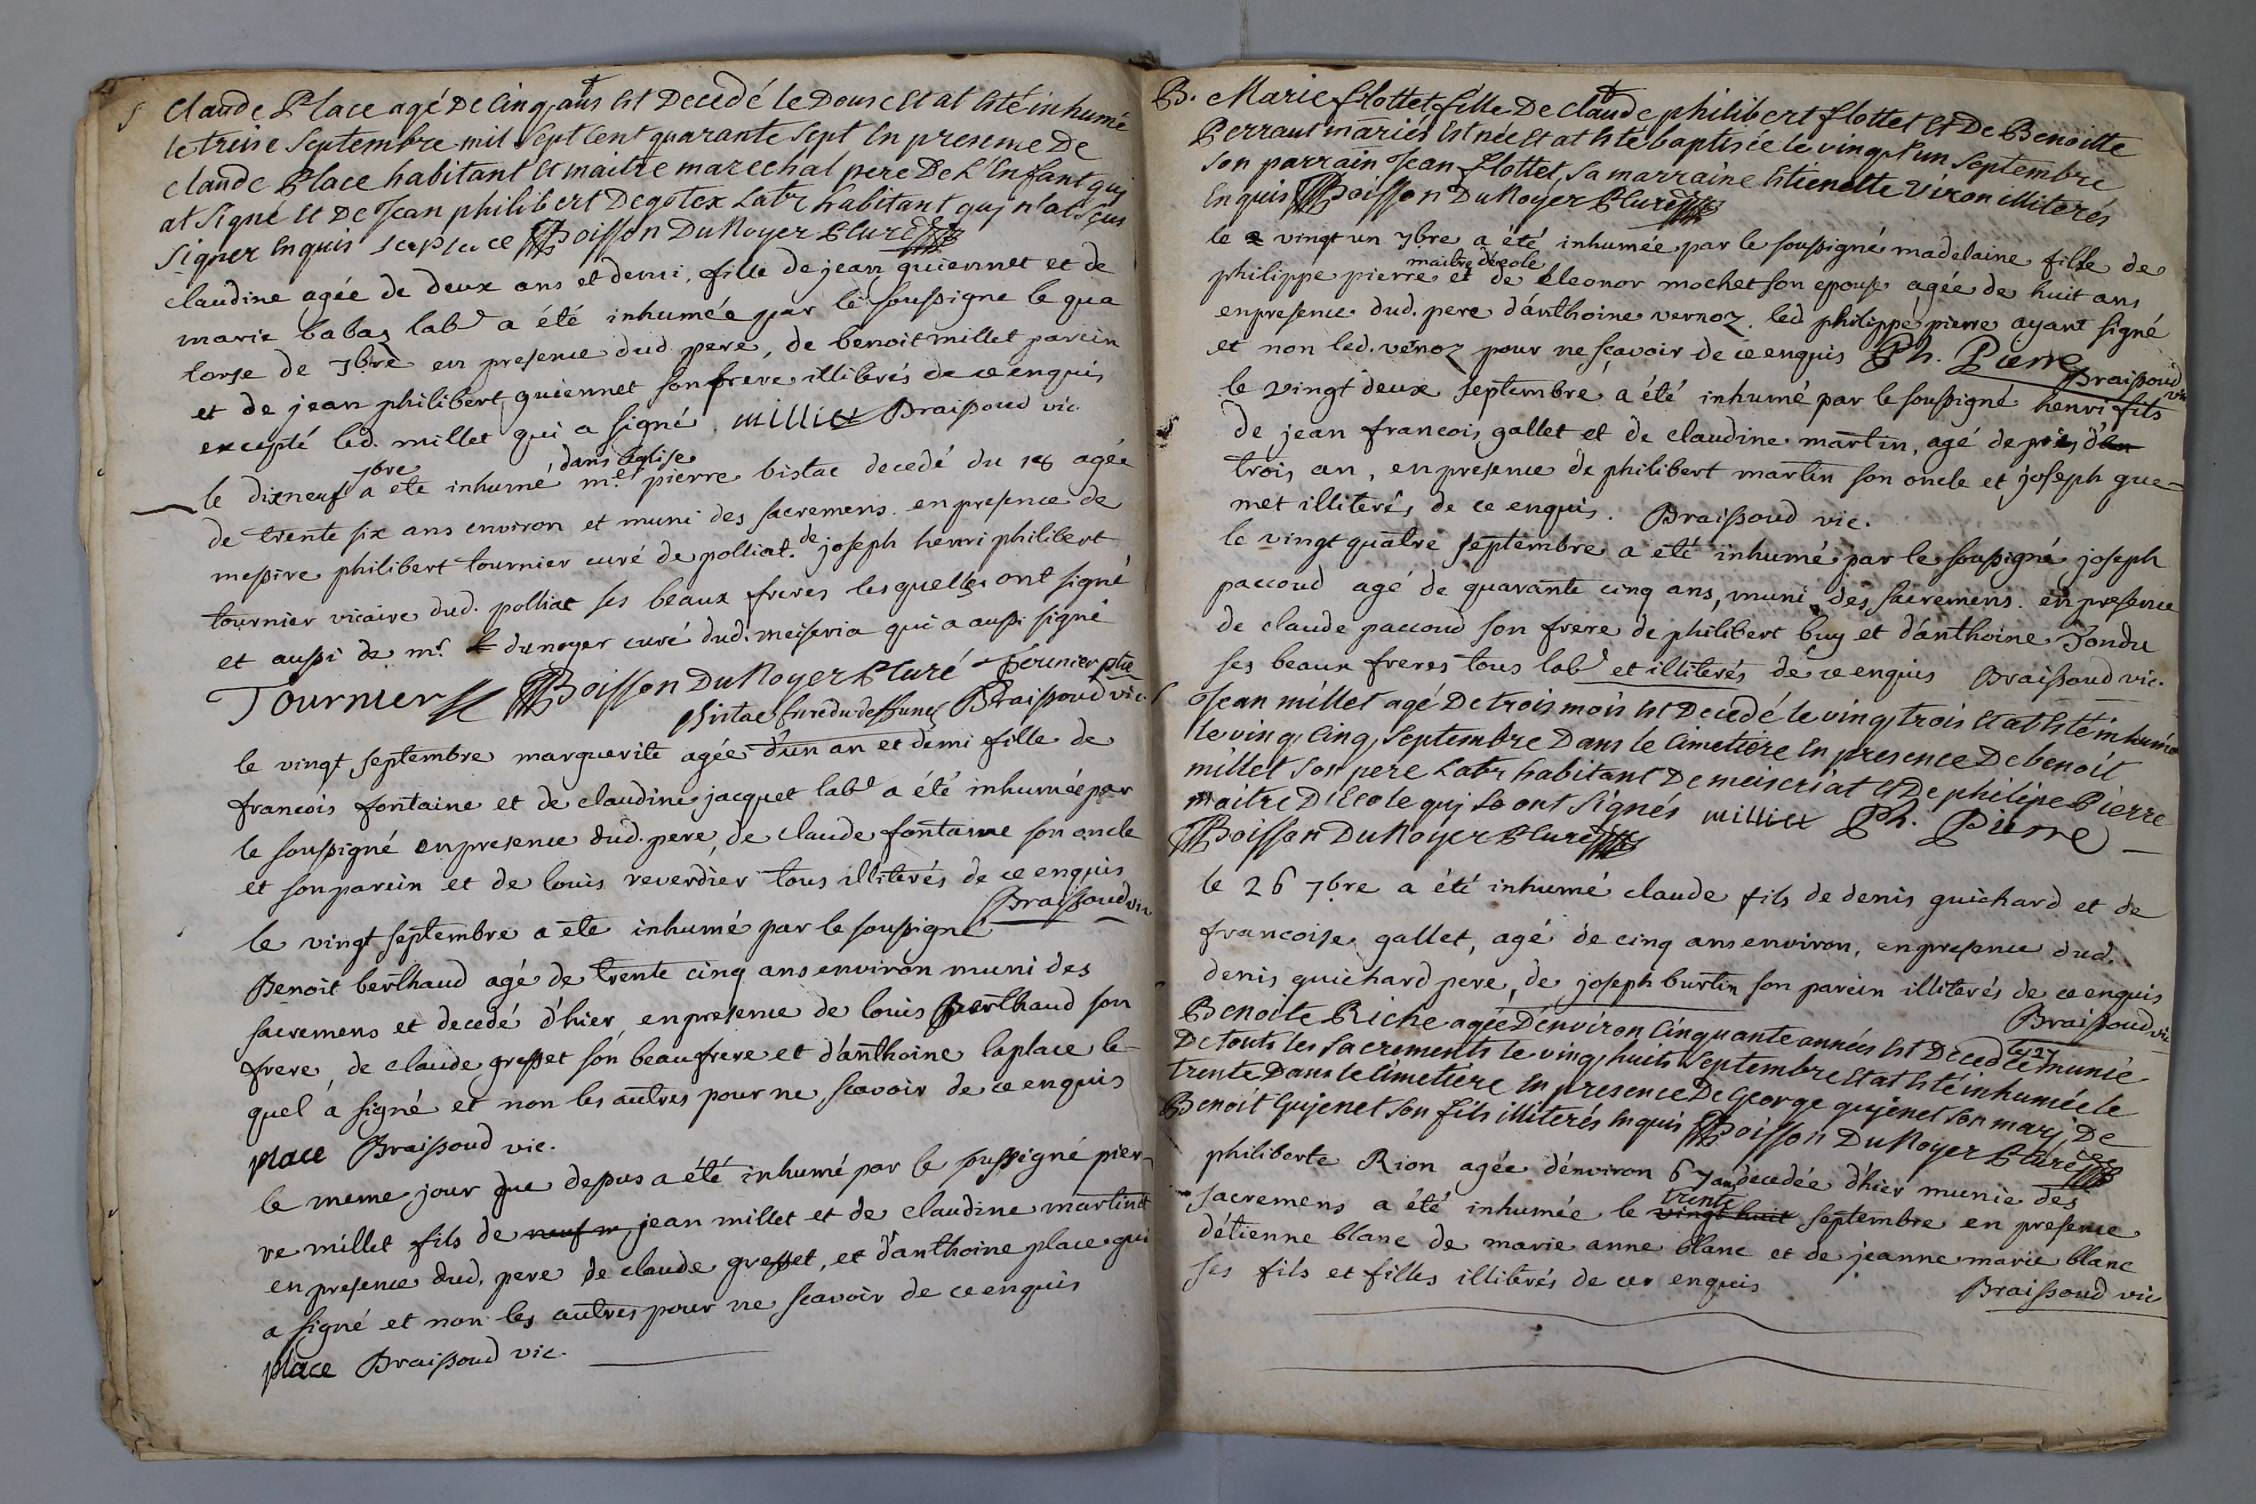 S Claude Place agé De Cinq ans Est Decedé le Douse Et at Esté inhumé
le treise Septembre mil Sept Cent quarante Sept En presense De
Claude Place habitant Et maitre marechal pere De L'Enfant quj
at Signé Et De Jean philibert Degotex Labr habitant quj n'at Sçus
Signer Enquis place Boisson Du Noyer Curé
claudine agée de deux ans et demi, fille de jean guiennet et de
marie babas labr a été inhumée par le soussigne le qua
torse de 7bre en presence dud pere, de benoit millet parein
et de jean philibert guiennet son frere illiterés de ce enquis
excepté led. millet qui a signé. milliet Braissoud vic.
7bre dans l'église
le dixneuf a ete inhumé me pierre bistac decedé du 18 agée
de trente six ans environ et muni des sacremens en presence de
messire philibert tournier curé de polliat. de joseph henri philibert
tournier vicaire dud. polliat ses beaux freres lesquelles ont signé
et aussi de mr. dunoyer curé dud. meiseria qui a aussi signé
Tournier Boisson Du Noyer Curé Tournier ptre
Bistac frere du deffunct Braissoud vic.
le vingt septembre marguerite agée d'un an et demi fille de
francois fontaine et de claudine jacquet labr a été inhumée par
le soussigné en presence dud. pere, de claude fontaine son oncle
et son parein et de louis reverdier tous illiterés de ce enquis
Braissoud vic
le vingt septembre a ete inhumé par le soussigné
Benoit berthaud agé de trente cinq ans environ muni des
sacremens et decedé d'hier, en presence de louis Berthaud son
frere, de claude gresset son beaufrere et d'anthoine laplace le-
quel a signé et non les autres pour ne scavoir de ce enquis
place Braissoud vic.
le meme jour que depus a été inhumé par le sussigné pier-
re millet fils de neuf m jean millet et de claudine martinet
en presence dud. pere de claude gresset, et d'anthoine place qui
a signé et non les autres pour ne scavoir de ce enquis
place Braissoud vic.
B. Marie flottet fille De Claude philibert flottet Et De Benoitte
Perraut mariés Est née Et at Esté baptisée le vingt un Septembre
Son parrain Jean flottet, Sa marraine Etienette Viron illiterés
Enquis Boisson Du Noyer Curé
le vingt un 7bre a été inhumée par le soussigné madelaine fille de
maitre d'ecole
philippe pierre et de éleonor mochet son epouse agée de huit ans
en presence dud. pere d'anthoine vernoz. led philippe pierre ayant signé
et non led. vénoz pour ne sçavoir de ce enquis Ph. Pierre
Braissoud vic
le vingt deux septembre a été inhumé par le soussigné henri fils
de jean francois gallet et de claudine martin, agé de près d'un
trois an, en presence de philibert martin son oncle et joseph gue-
met illiterés de ce enquis. Braissoud vic.
le vingt quatre septembre a été inhumé par le soussigné joseph
paccoud agé de quarante cinq ans, muni des sacremens. en presence
de claude paccoud son frere de philibert buy et d'anthoine Tondu
ses beaux freres tous labr et illiterés de ce enquis Braissoud vic.
S Jean millet agé De trois mois Est Decedé le vingt trois Et at Esté inhumé
le vingt Cinq Septembre Dans le Cimetiere En presence De benoit
millet Son pere Labr habitant De meiseriat Et De philipe Pierre
maitre D'Ecole quj ont Signés milliet Ph. Pierre
Boisson Du Noyer Curé
le 26 7bre a été inhumé claude fils de denis guichard et de
francoise gallet, agé de cinq ans environ, en presence dud.
denis guichard pere, de joseph burtin son parein illiterés de ce enquis
Braissoud vic
Benoite Riche agée D'environ Cinquante années Est Decedée munie
le 27
De touts les Sacrements le vingt huit Septembre Et at Esté inhumée le
trente Dans le Cimetiere En presence De George gujenet Son marj, De
Benoit Gujenet Son fils illiterés Enquis Boisson Du Noyer Curé
philiberte Rion agée d'environ 67 ans decedée d'hier munie des
trente
sacremens a été inhumée le vingt huit septembre en presence
d'étienne blanc de marie anne blanc et de jeanne marie blanc
ses fils et filles illiterés de ce enquis
Braissoud vic